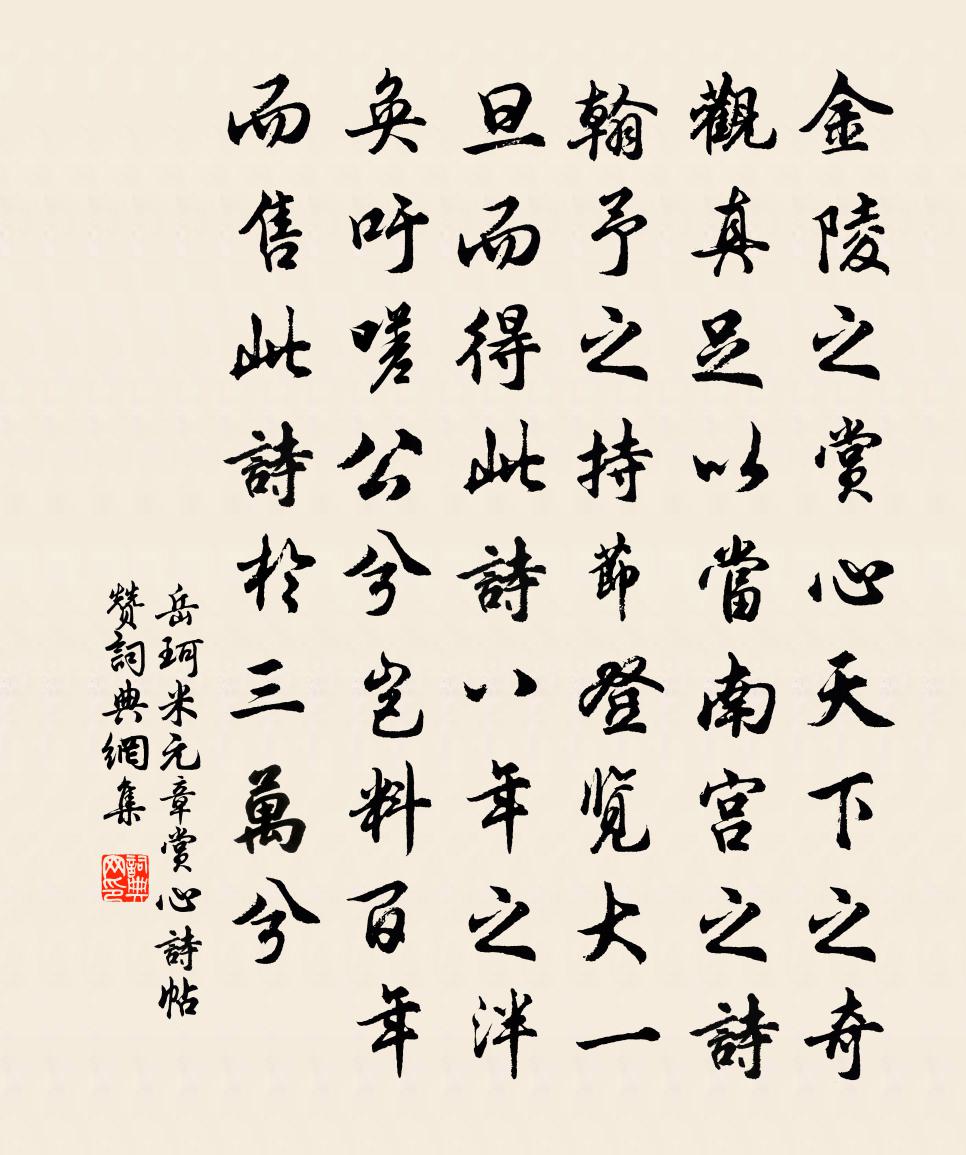 金陵之賞心天下之奇
觀真足以當南宮之詩
翰予之持節登览大一
旦而得此詩八年之泮
奐吁嗟公兮豈料百年
而售此詩於三萬兮
岳珂米元章賞心詩帖
赞詞典網集
詞典网印